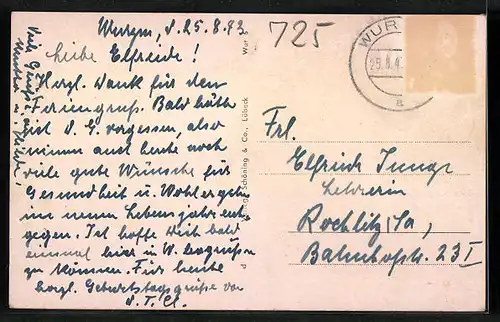 Wurzen, d. 25.8.42
Liebe Elfriede!
Herzl. Dank für den
Feriengruß. Bald hätte
ist d. G. vergessen, also
nimm auch heute noch
viele gute Wünsche für
Gesundheit u. Wohlergehn
im neuen Lebensjahr ent
gegen. Ich hoffe Dich bald
einmal hier in W. begrüßen
zu können. Für heute
herzl. Geburtstagsgrüße von
d. T. Cl.
Viele Grüße
Mutter u.
725
WUR
25.8.4
a
Schöning & Co., Lübeck
Frl.
Elfriede Junge
Lehrerin
Rochlitz/Sa,
Bahnhofstr. 23 I